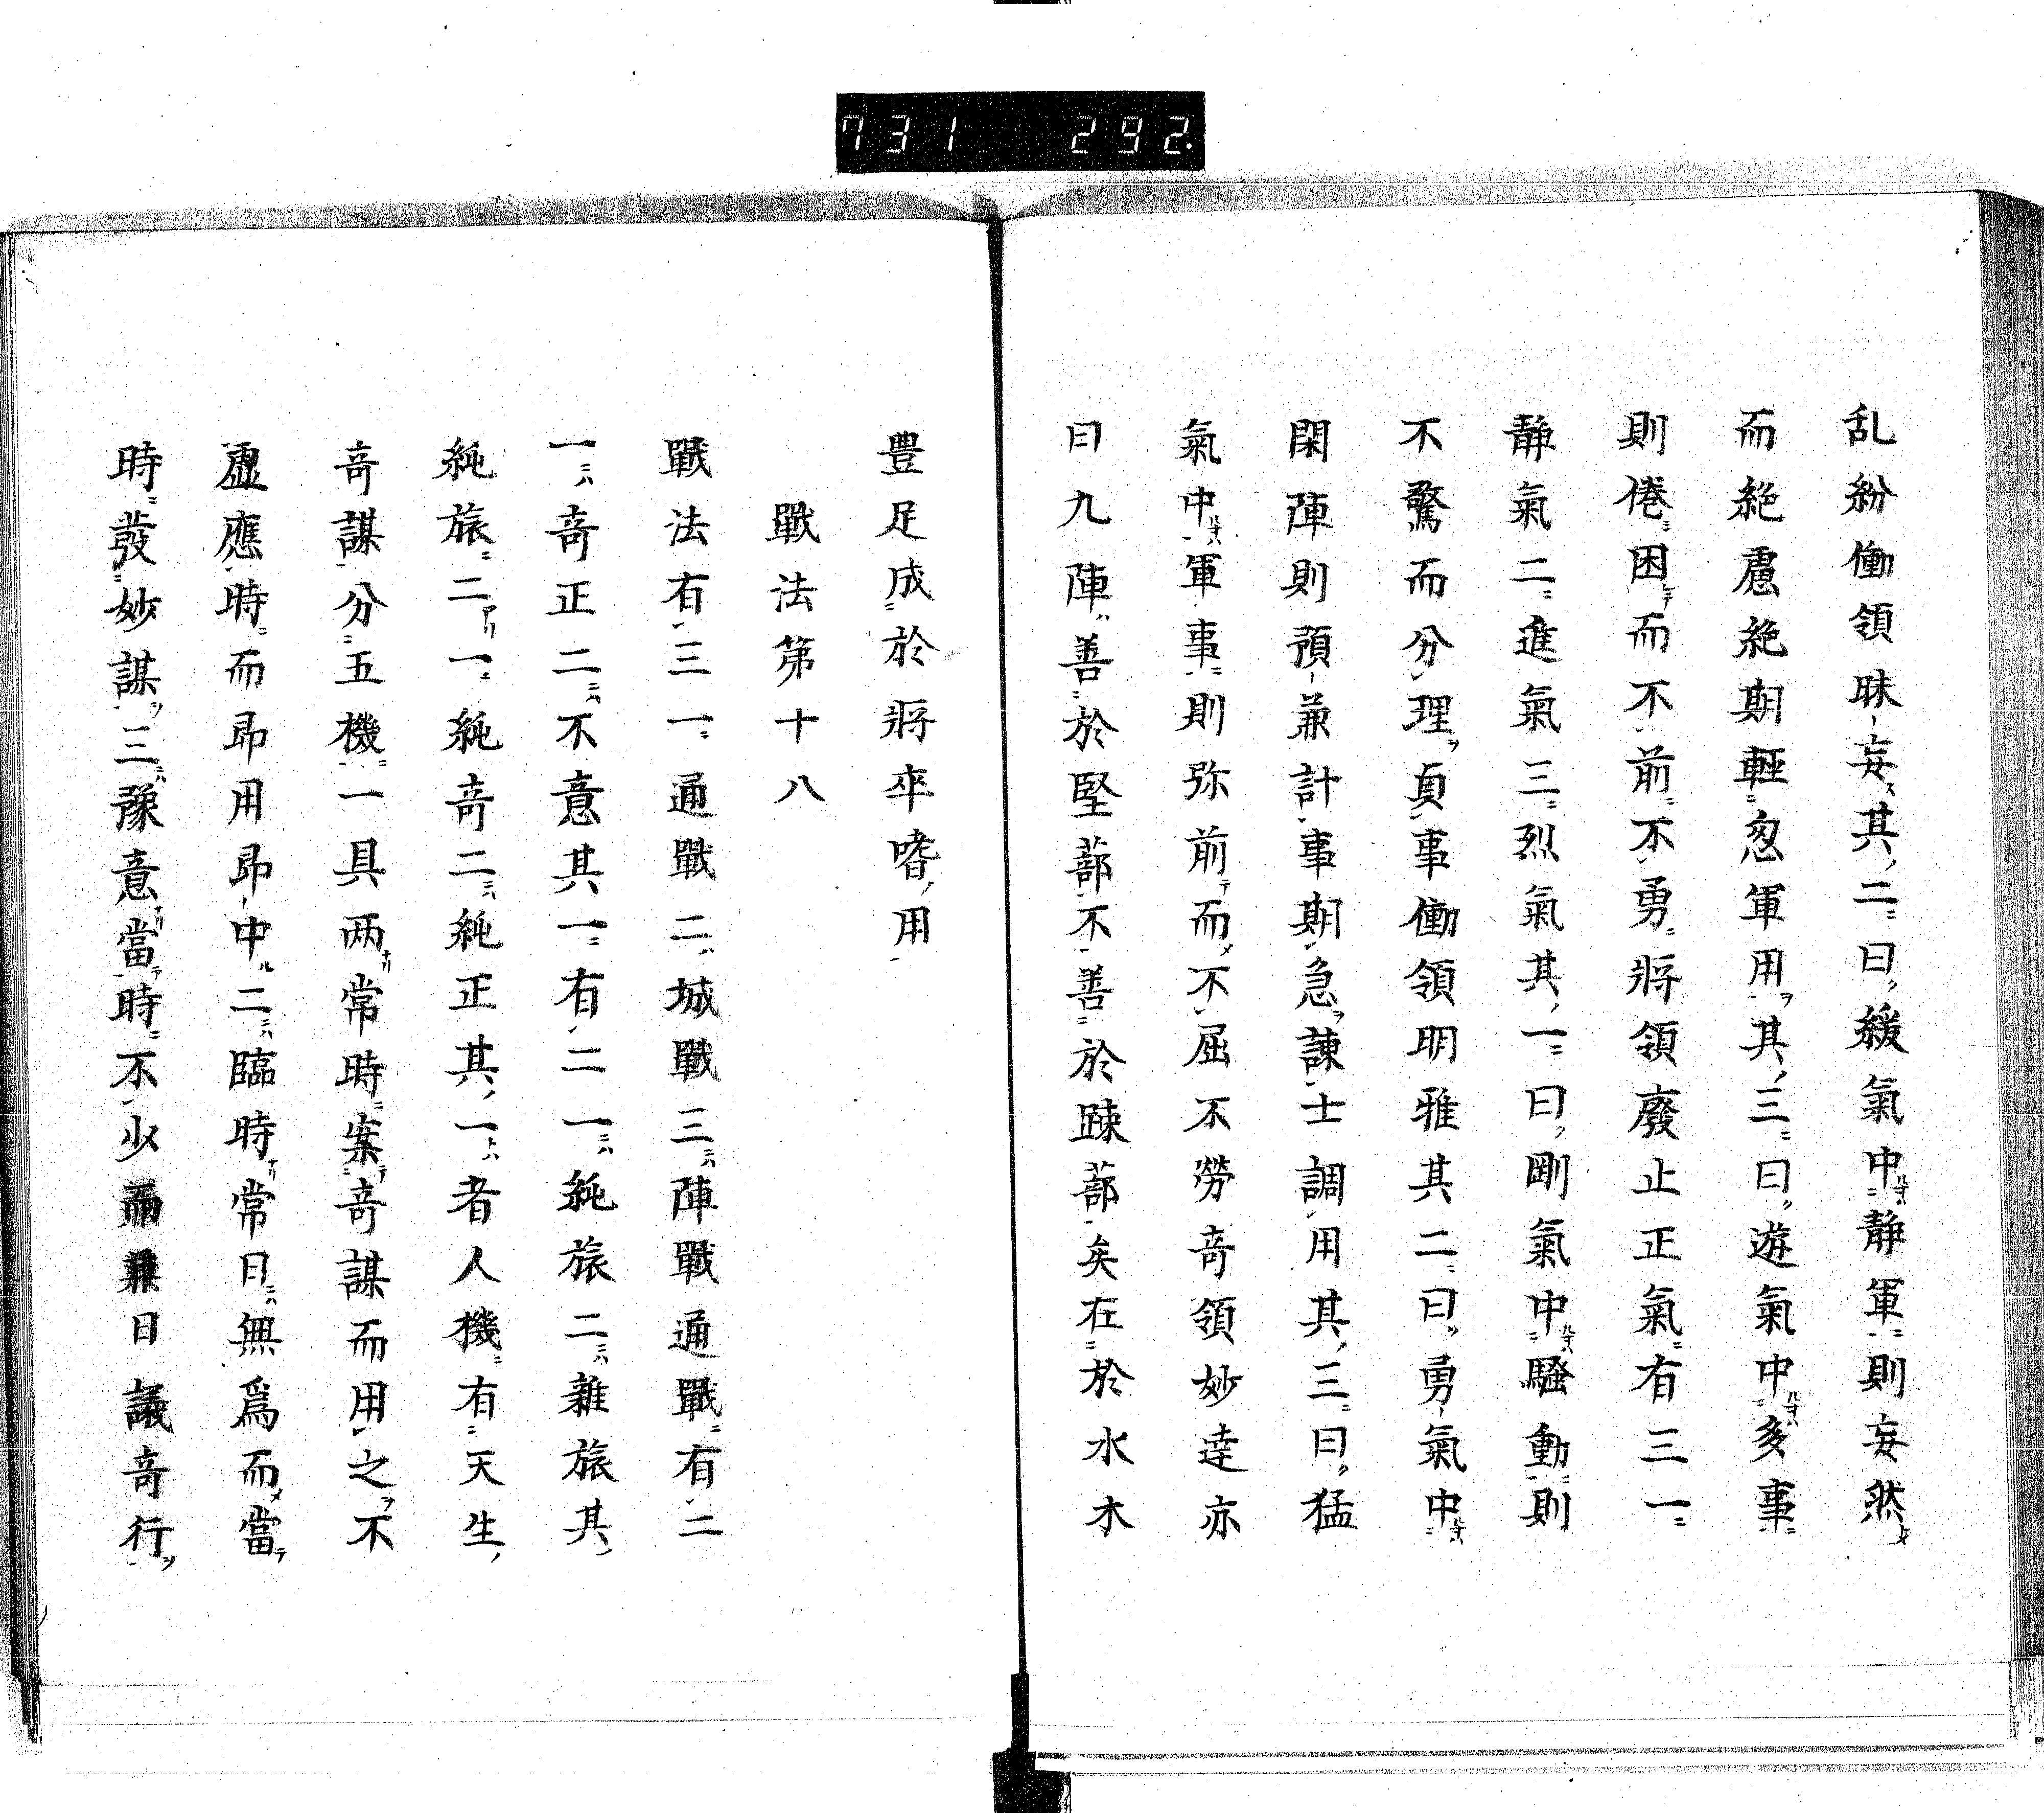 731 292.
乱紛働領昧妄其二曰緩氣中静軍則妄然
而絶慮絶期輕忽軍用其三曰遊氣中多事
則倦困而不前不勇將領廢止正氣有三一
静氣二進氣三烈氣其一曰剛氣中騒動則
不驚而分理貞事働領明雅其二曰勇氣中
閑陣則預兼計事期急諌士調用其三曰猛
氣中軍事則弥前而不屈不勞奇領妙達亦
曰九陣善於堅蔀不善於踈蔀矣在於水木
豊足成於將卒嗜用
戰法第十八
戰法有三一通戰二城戰三陣戰通戰有二
一奇正二不意其一有二一純旅二雜旅其
純旅二一純奇二純正其一者人機有天生
奇謀分五機一具两常時案奇謀而用之不
虚應時而即用即中二臨時常日無爲而當
時發妙謀三豫意當時不少而兼日議奇行